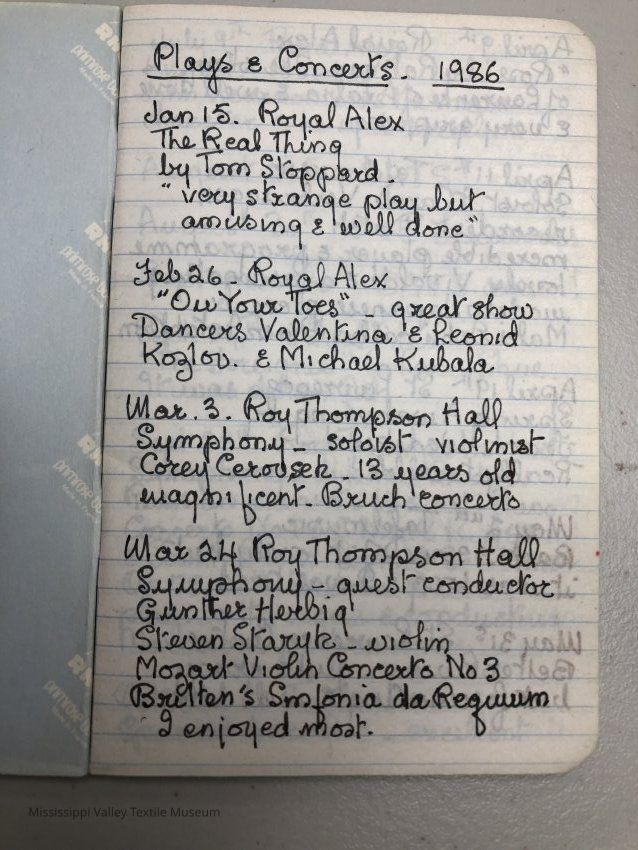 Plays & Concerts. 1986
Jan 15. Royal Alex
The Real Thing
by Tom Stoppard.
"very strange play but
amusing & well done"
Feb 26 - Royal Alex
"On Your Toes" - great show
Dancers Valentina & Leonid
Kozlov. & Michael Kubala
Mar. 3. Roy Thompson Hall
Symphony - soloist violinist
Corey Cerovsek - 13 years old
magnificent. Bruch concerto
Mar 24 Roy Thompson Hall
Symphony - guest conductor
Gunther Herbig
Steven Staryk - violin
Mozart Violin Concerto No 3
Britten's Sinfonia da Requium
I enjoyed most.
Mississippi Valley Textile Museum